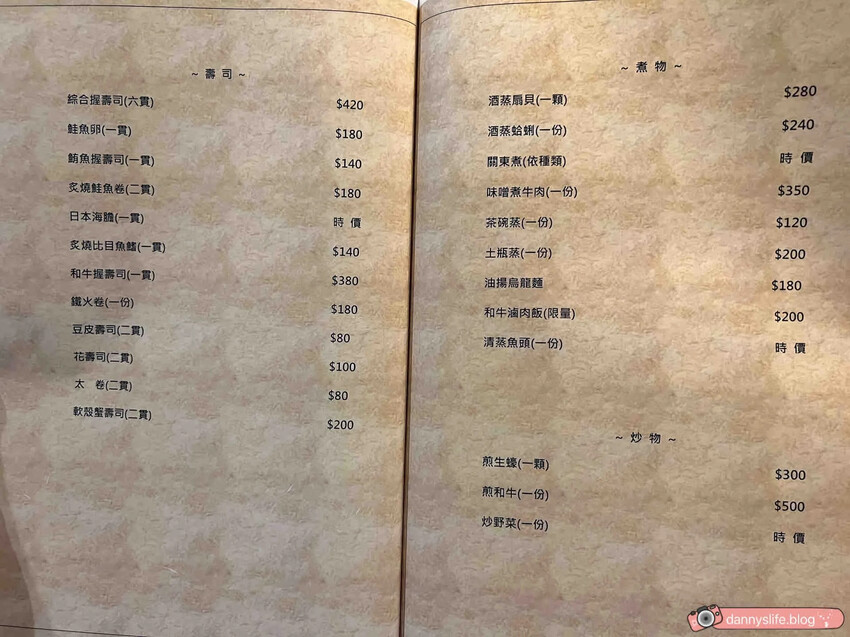 ~ 壽 司 ~
綜合握壽司(六貫) $420
鮭魚卵(一貫) $180
鮪魚握壽司(一貫) $140
炙燒鮭魚卷(二貫) $180
日本海膽(一貫) 時 價
炙燒比目魚鰭(一貫) $140
和牛握壽司(一貫) $380
鐵火卷(一份) $180
豆皮壽司(二貫) $80
花壽司(二貫) $100
太 卷(二貫) $80
軟殼蟹壽司(二貫) $200
~ 煮 物 ~
酒蒸扇貝(一顆) $280
酒蒸蛤蜊(一份) $240
關東煮(依種類) 時 價
味噌煮牛肉(一份) $350
茶碗蒸(一份) $120
土瓶蒸(一份) $200
油揚烏龍麵 $180
和牛滷肉飯(限量) $200
清蒸魚頭(一份) 時 價
~ 炒 物 ~
煎生蠔(一顆) $300
煎和牛(一份) $500
炒野菜(一份) 時 價
dannyslife.blog